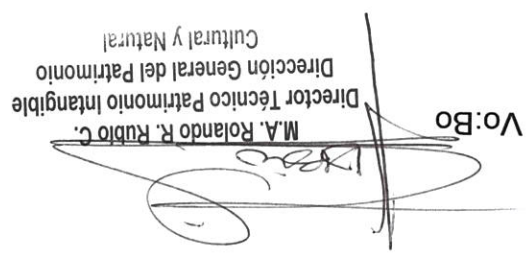 Vo:Bo
M.A. Rolando R. Rubio C.
Director Técnico Patrimonio Intangible
Dirección General del Patrimonio
Cultural y Natural